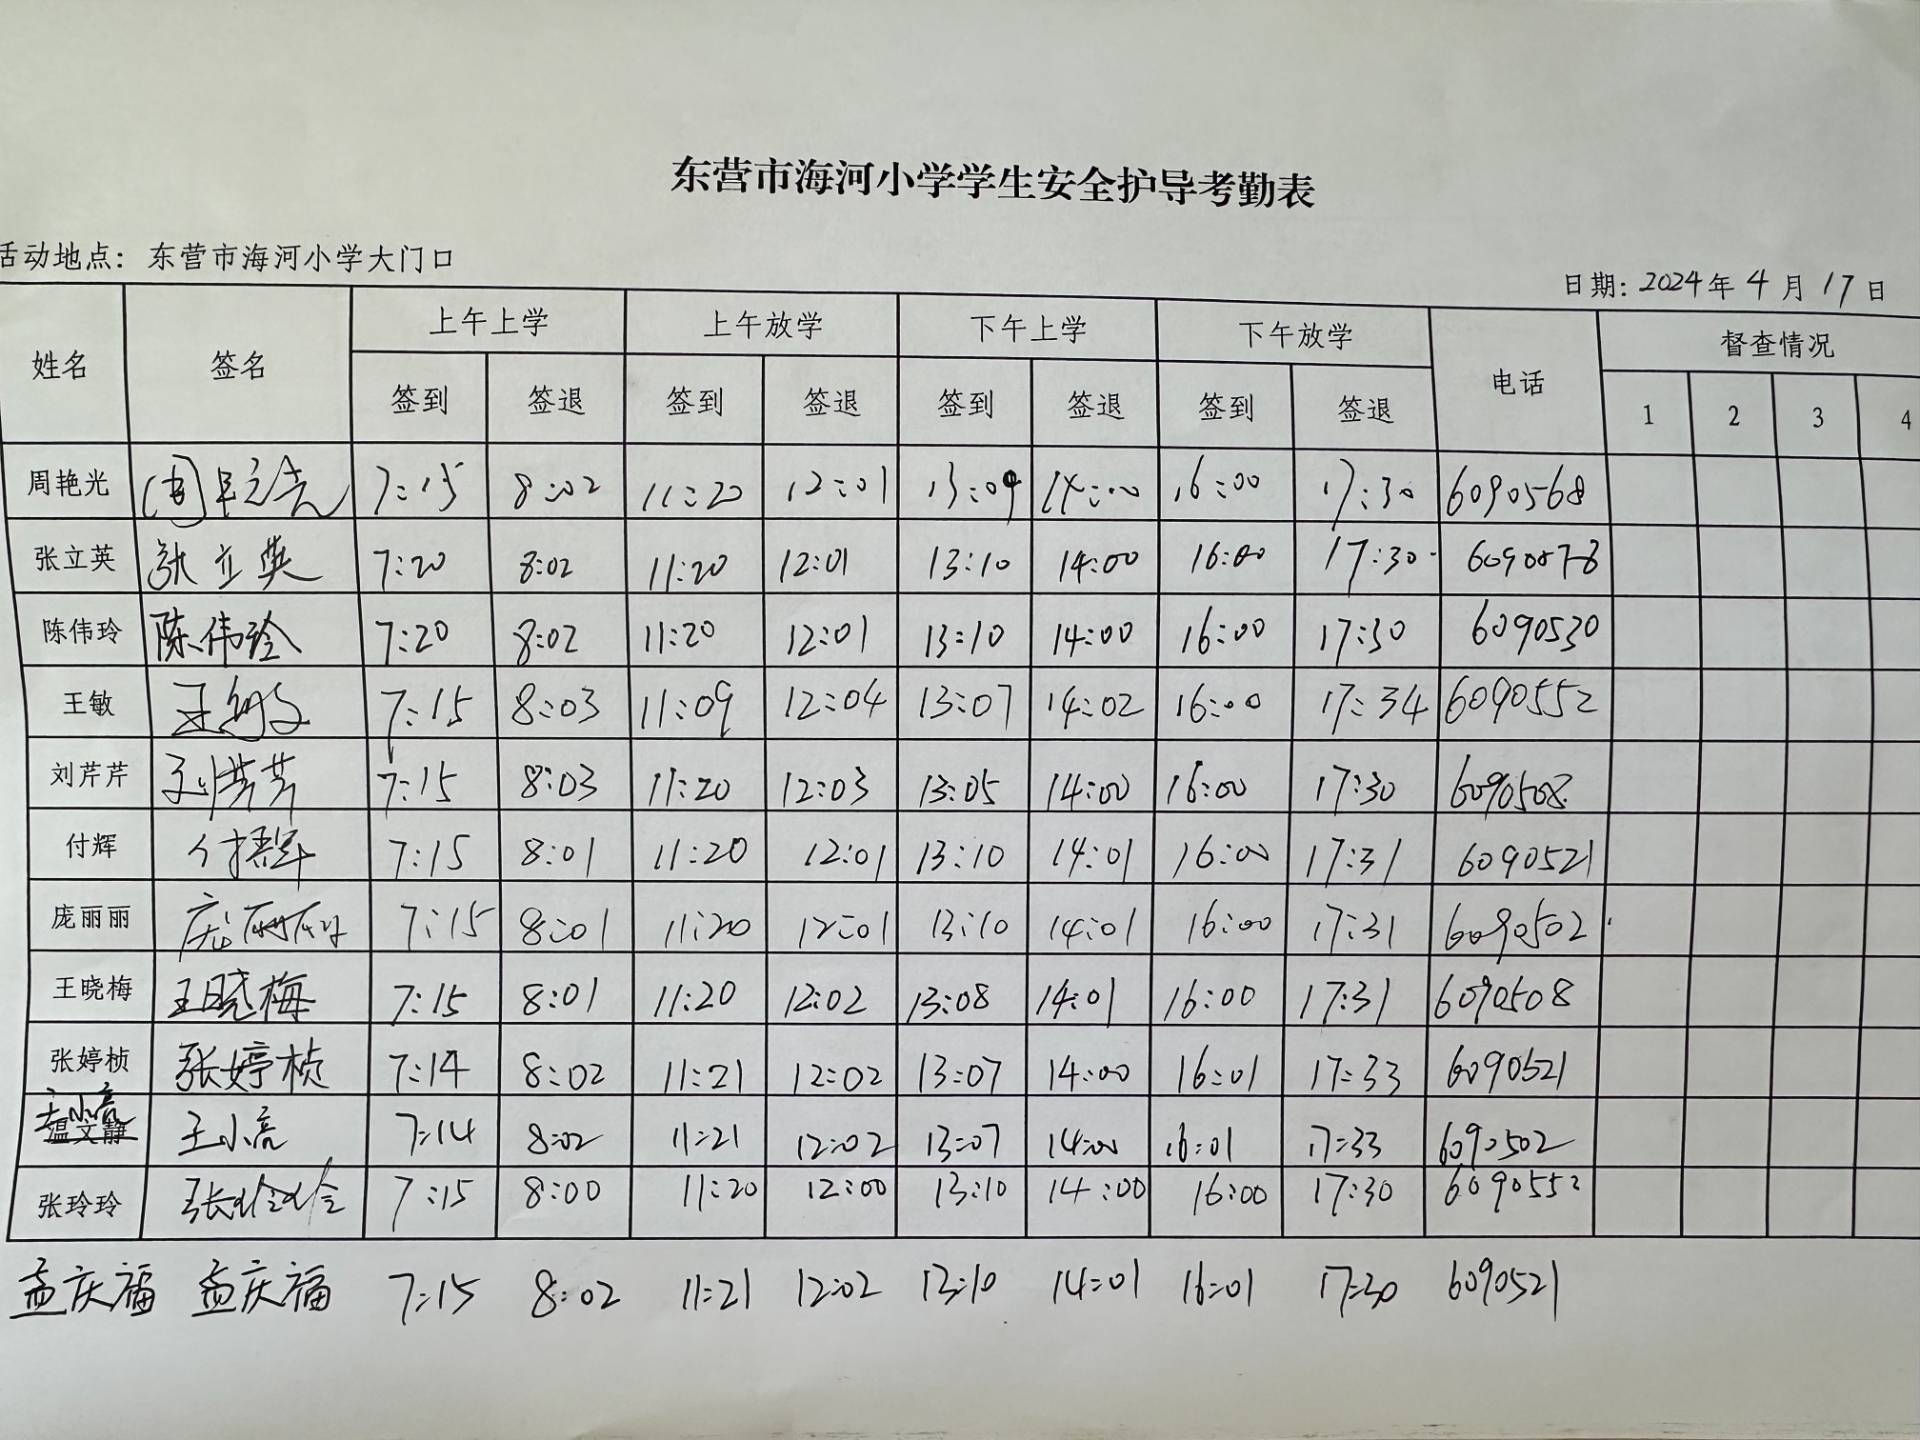 东营市海河小学学生安全护导考勤表
活动地点：东营市海河小学大门口
日期：2024年4月17日
姓名 签名 上午上学 上午放学 下午上学 下午放学 电话 督查情况
签到 签退 签到 签退 签到 签退 签到 签退 1 2 3 4
周艳光 周艳光 7:15 8:02 11:20 12:01 13:09 14:00 16:00 17:30 6090568
张立英 张立英 7:20 8:02 11:20 12:01 13:10 14:00 16:00 17:30
陈伟玲 陈伟玲 7:20 8:02 11:20 12:01 13:10 14:00 16:00 17:30 6090530
王敏 王敏 7:15 8:03 11:09 12:04 13:07 14:02 16:00 17:34 6090552
刘芹芹 刘芹芹 7:15 8:03 11:20 12:03 13:05 14:00 16:00 17:30 6090508
付辉 付辉 7:15 8:01 11:20 12:01 13:10 14:01 16:00 17:31 6090521
庞丽丽 庞丽丽 7:15 8:01 11:20 12:01 13:10 14:01 16:00 17:31 6090502
王晓梅 王晓梅 7:15 8:01 11:20 12:02 13:08 14:01 16:00 17:31 6090508
张婷桢 张婷桢 7:14 8:02 11:21 12:02 13:07 14:00 16:01 17:33 6090521
王小亮
温文静 王小亮 7:14 8:02 11:21 12:02 13:07 14:00 16:01 17:33 6090502
张玲玲 张玲玲 7:15 8:00 11:20 12:00 13:10 14:00 16:00 17:30 6090552
孟庆福 孟庆福 7:15 8:02 11:21 12:02 13:10 14:01 16:01 17:30 6090521